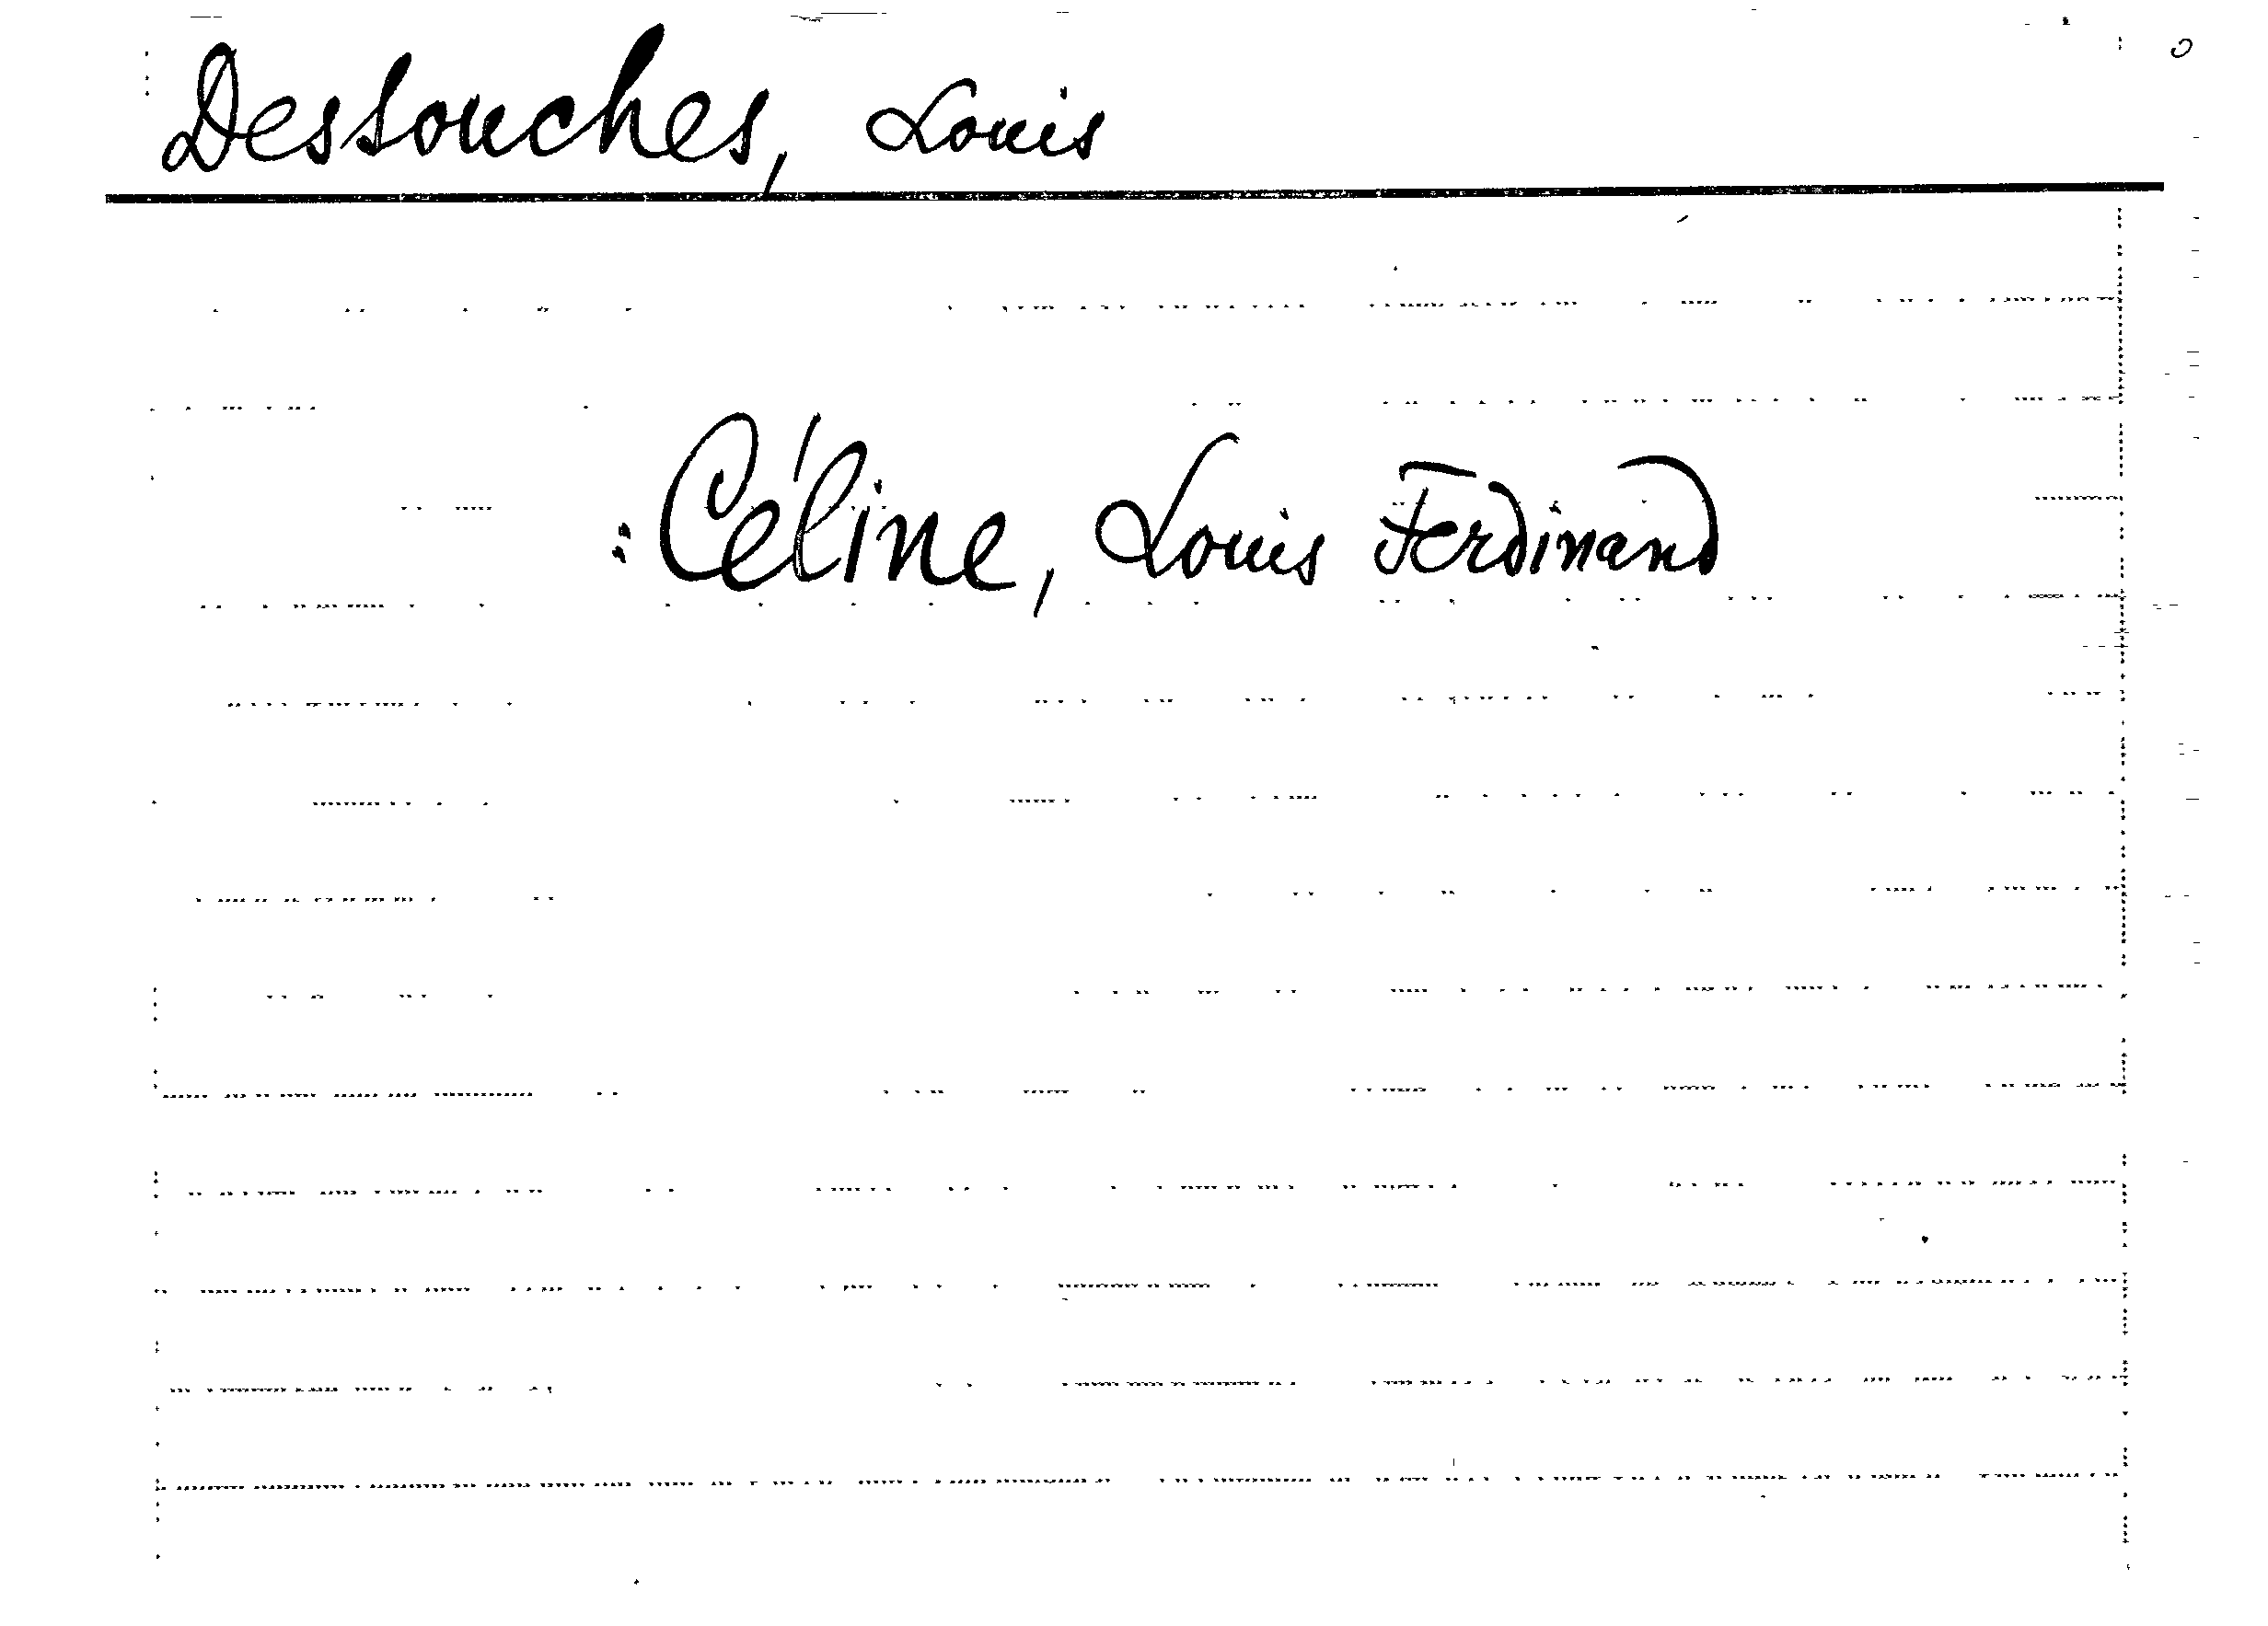 Dessouches, Louis
: Céline, Louis Ferdinand